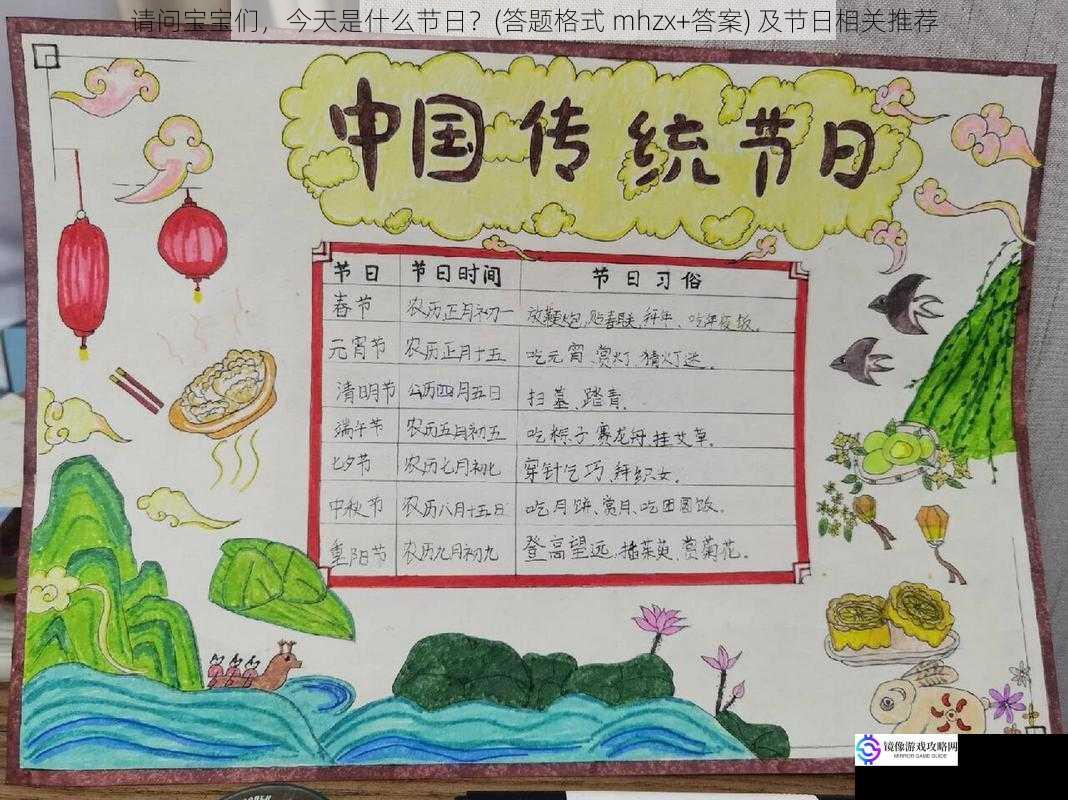 请问宝宝们，今天是什么节日？(答题格式 mhzx+答案) 及节日相关推荐
中国传统节日
节日 节日时间 节日习俗
春节 农历正月初一 放鞭炮、贴春联、拜年、吃年夜饭。
元宵节 农历正月十五 吃元宵、赏灯、猜灯迷。
清明节 公历四月五日 扫墓、踏青。
端午节 农历五月初五 吃粽子、赛龙舟、挂艾草。
七夕节 农历七月初七 穿针乞巧、拜织女。
中秋节 农历八月十五日 吃月饼、赏月、吃团圆饭。
重阳节 农历九月初九 登高望远、插茱萸、赏菊花。
镜像游戏攻略网
MIRROR GAME GUIDE